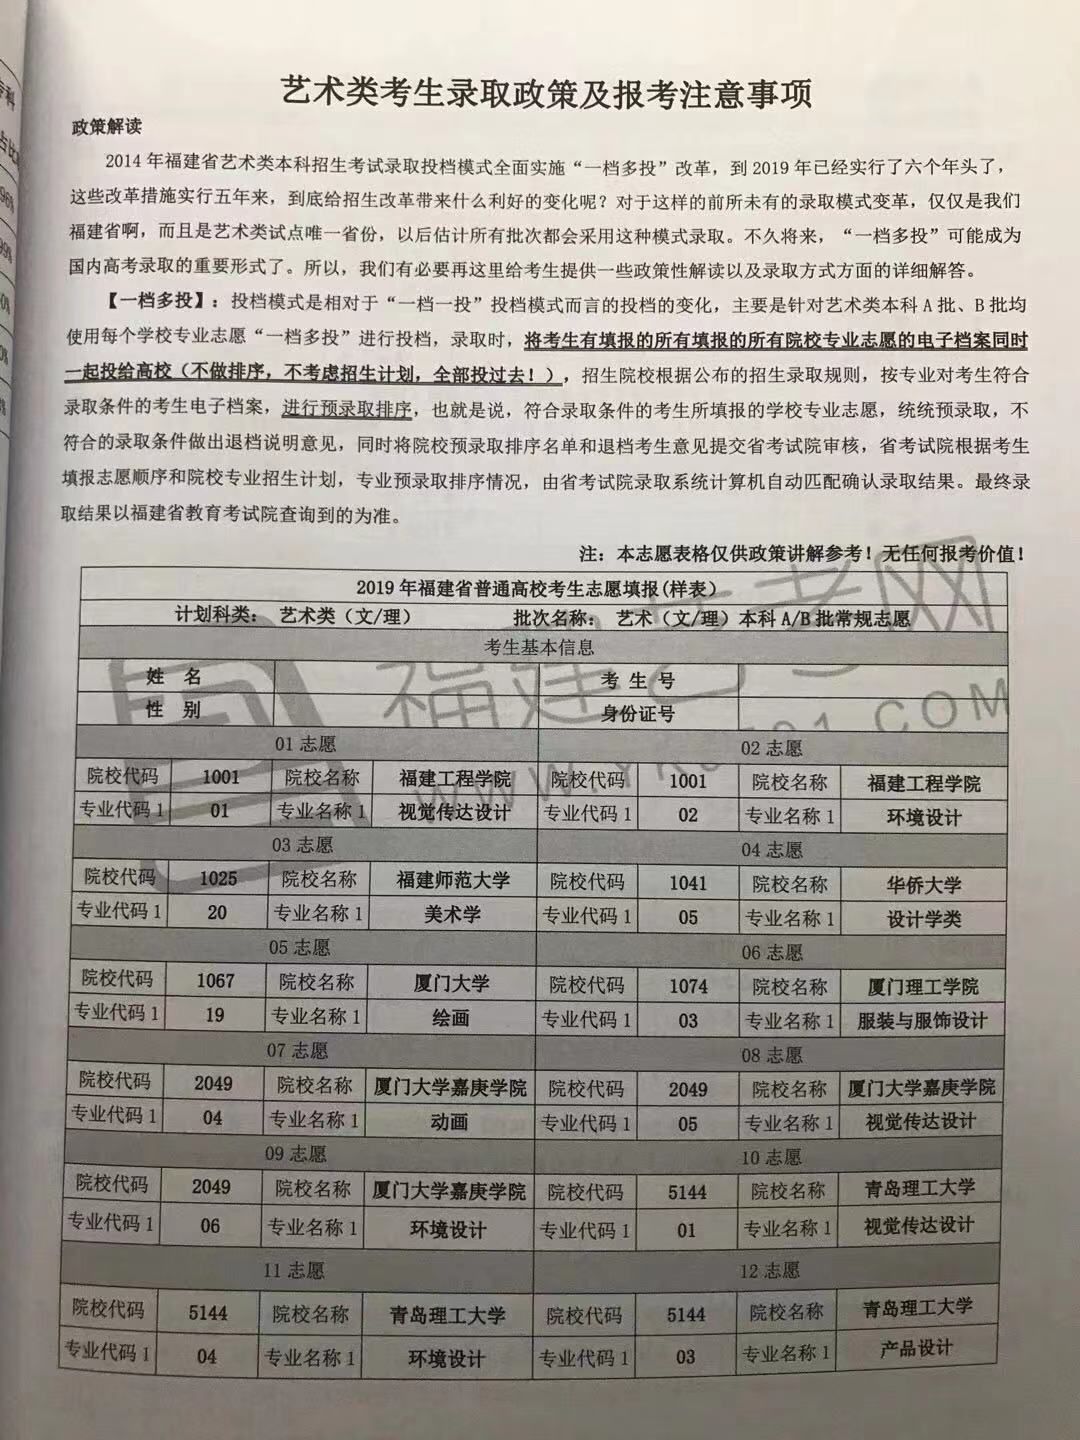 艺术类考生录取政策及报考注意事项
政策解读
2014年福建省艺术类本科招生考试录取投档模式全面实施“一档多投”改革，到2019年已经实行了六个年头了，
这些改革措施实行五年来，到底给招生改革带来什么利好的变化呢？对于这样的前所未有的录取模式变革，仅仅是我们
福建省啊，而且是艺术类试点唯一省份，以后估计所有批次都会采用这种模式录取。不久将来，“一档多投”可能成为
国内高考录取的重要形式了。所以，我们有必要再这里给考生提供一些政策性解读以及录取方式方面的详细解答。
【一档多投】：投档模式是相对于“一档一投”投档模式而言的投档的变化，主要是针对艺术类本科A批、B批均
使用每个学校专业志愿“一档多投”进行投档，录取时，将考生有填报的所有填报的所有院校专业志愿的电子档案同时
一起投给高校（不做排序，不考虑招生计划，全部投过去！），招生院校根据公布的招生录取规则，按专业对考生符合
录取条件的考生电子档案，进行预录取排序，也就是说，符合录取条件的考生所填报的学校专业志愿，统统预录取，不
符合的录取条件做出退档说明意见，同时将院校预录取排序名单和退档考生意见提交省考试院审核，省考试院根据考生
填报志愿顺序和院校专业招生计划，专业预录取排序情况，由省考试院录取系统计算机自动匹配确认录取结果。最终录
取结果以福建省教育考试院查询到的为准。
注：本志愿表格仅供政策讲解参考！无任何报考价值！
2019年福建省普通高校考生志愿填报(样表)
计划科类： 艺术类（文/理） 批次名称： 艺术（文/理）本科A/B批常规志愿
考生基本信息
姓 名 考 生 号
性 别 身份证号
01志愿 02志愿
院校代码 1001 院校名称 福建工程学院 院校代码 1001 院校名称 福建工程学院
专业代码1 01 专业名称1 视觉传达设计 专业代码1 02 专业名称1 环境设计
03志愿 04志愿
院校代码 1025 院校名称 福建师范大学 院校代码 1041 院校名称 华侨大学
专业代码1 20 专业名称1 美术学 专业代码1 05 专业名称1 设计学类
05志愿 06志愿
院校代码 1067 院校名称 厦门大学 院校代码 1074 院校名称 厦门理工学院
专业代码1 19 专业名称1 绘画 专业代码1 03 专业名称1 服装与服饰设计
07志愿 08志愿
院校代码 2049 院校名称 厦门大学嘉庚学院 院校代码 2049 院校名称 厦门大学嘉庚学院
专业代码1 04 专业名称1 动画 专业代码1 05 专业名称1 视觉传达设计
09志愿 10志愿
院校代码 2049 院校名称 厦门大学嘉庚学院 院校代码 5144 院校名称 青岛理工大学
专业代码1 06 专业名称1 环境设计 专业代码1 01 专业名称1 视觉传达设计
11志愿 12志愿
院校代码 5144 院校名称 青岛理工大学 院校代码 5144 院校名称 青岛理工大学
专业代码1 04 专业名称1 环境设计 专业代码1 03 专业名称1 产品设计
福建艺考网